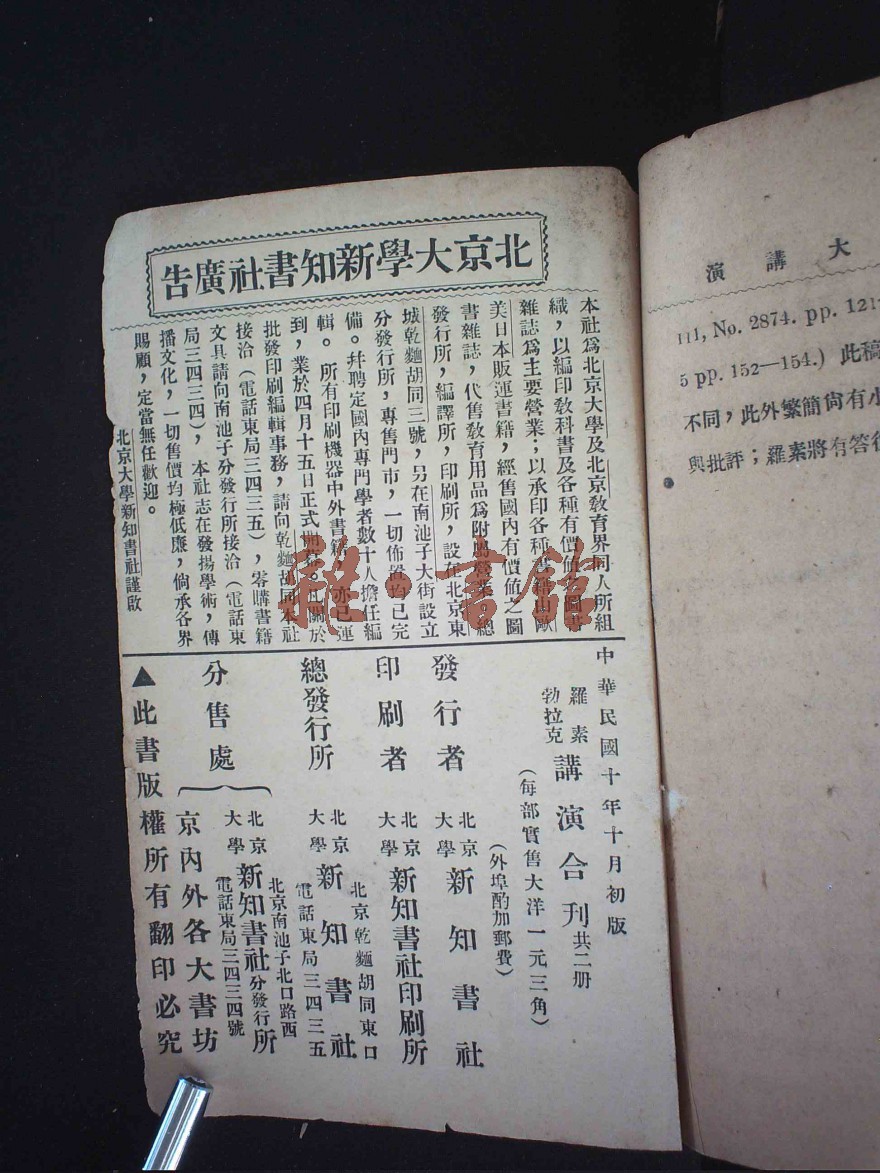 北京大學新知書社廣告
本社爲北京大學及北京敎育界同人所組
織，以編印敎科書及各種有價値之圖書
雜誌爲主要營業；以承印各種書籍由歐
美日本販運書籍，經售國內有價値之圖
書雜誌，代售敎育用品爲附屬營業。總
發行所，編譯所，印刷所，設在北京東
城乾麵胡同三號，另在南池子大街設立
分發行所，專售門市，一切佈置均已完
備。幷聘定國內專門學者數十人擔任編
輯。所有印刷機器中外書籍，亦已運
到，業於四月十五日正式開幕。凡關於
批發印刷編輯事務，請向乾麵胡同本社
接洽（電話東局三四三五），零購書籍
文具請向南池子分發行所接洽（電話東
局三四三四），本社志在發揚學術，傳
播文化，一切售價均極低廉，倘承各界
賜顧，定當無任歡迎。
北京大學新知書社謹啟
中華民國十年十月初版
羅素
勃拉克
講演合刊共二册
（每部實售大洋一元三角）
（外埠酌加郵費）
發行者
北京大學新知書社
印刷者
北京大學新知書社印刷所
總發行所
北京乾麵胡同東口
北京大學新知書社
電話東局三四三五
分售處
北京南池子北口路西
北京大學新知書社分發行所
電話東局三四三四號
京內外各大書坊
▲此書版權所有翻印必究
演講大
111, No. 2874. pp. 121
5 pp. 152—154.) 此稿
不同，此外繁簡尙有小
與批評；羅素將有答復
雅·書館